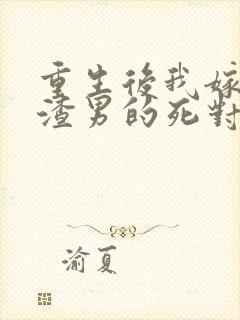 重生後我嫁
渣男的死對
渝夏